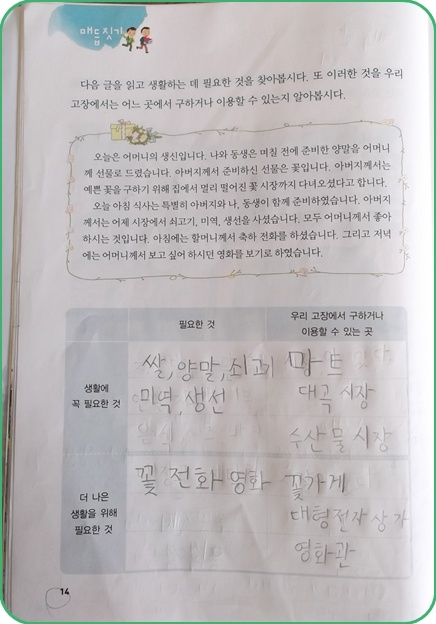 매듭짓기
다음 글을 읽고 생활하는 데 필요한 것을 찾아봅시다. 또 이러한 것을 우리
고장에서는 어느 곳에서 구하거나 이용할 수 있는지 알아봅시다.
오늘은 어머니의 생신입니다. 나와 동생은 며칠 전에 준비한 양말을 어머니
께 선물로 드렸습니다. 아버지께서 준비하신 선물은 꽃입니다. 아버지께서는
예쁜 꽃을 구하기 위해 집에서 멀리 떨어진 꽃 시장까지 다녀오셨다고 합니다.
오늘 아침 식사는 특별히 아버지와 나, 동생이 함께 준비하였습니다. 아버지
께서는 어제 시장에서 쇠고기, 미역, 생선을 사셨습니다. 모두 어머니께서 좋아
하시는 것입니다. 아침에는 할머니께서 축하 전화를 하셨습니다. 그리고 저녁
에는 어머니께서 보고 싶어 하시던 영화를 보기로 하였습니다.
필요한 것
우리 고장에서 구하거나
이용할 수 있는 곳
생활에
꼭 필요한 것
쌀, 양말, 쇠고기
미역, 생선
마트
대곡 시장
수산물 시장
더 나은
생활을 위해
필요한 것
꽃 전화 영화
꽃가게
대형전자 상가
영화관
14